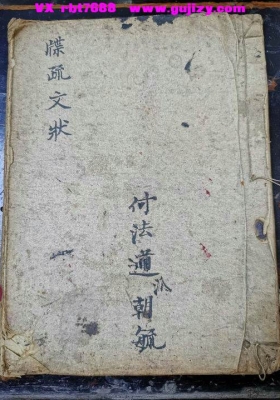 VX rbt7888 www.gujizy.com
牒疏文状
付法道泓
朝毓